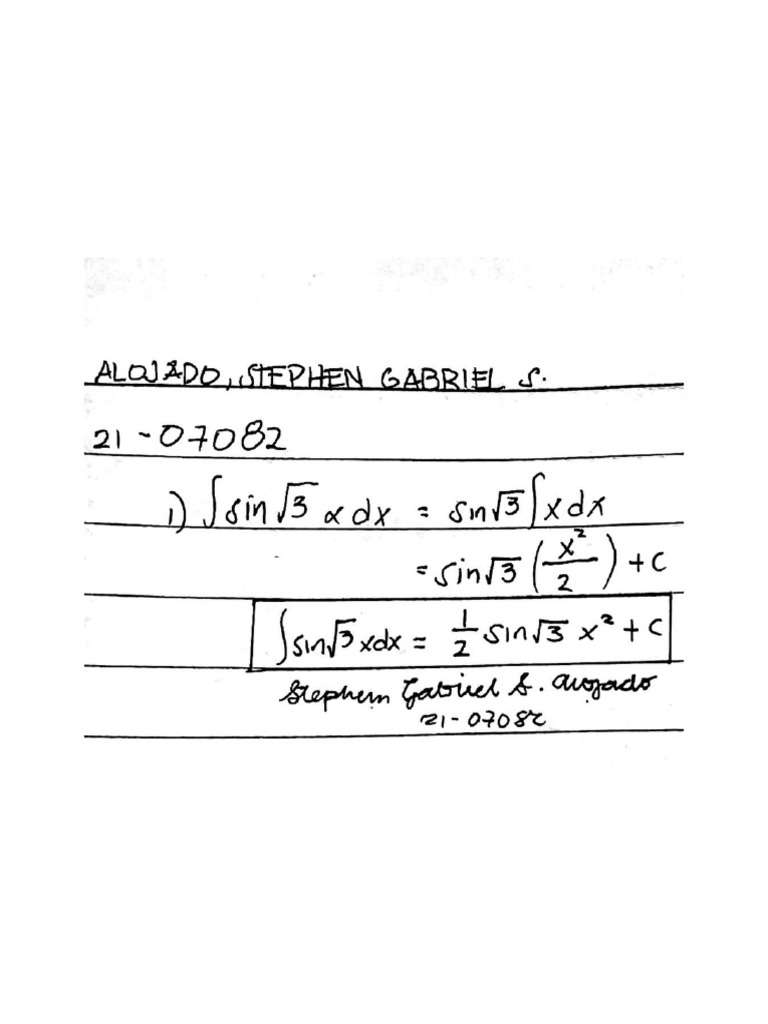 ALOJADO, STEPHEN GABRIEL S.
21-07082
1) ∫sin√3 x dx = sin√3 ∫x dx
= sin√3 (x²/2) + C
∫sin√3 xdx = 1/2 sin√3 x² + C
Stephen Gabriel S. Alojado
21-07082